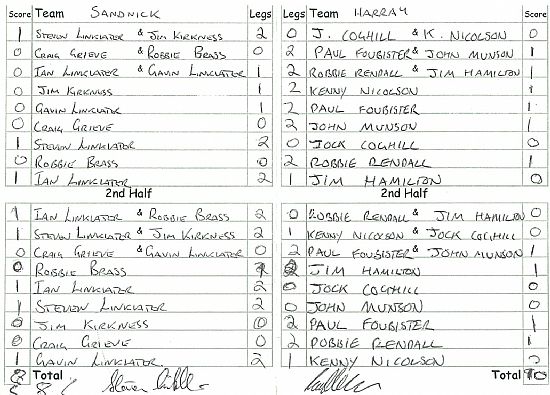 Score Team SANDWICK Legs Legs Team HARRAY Score
1 STEVEN LINKLATER & JIM KIRKNESS 2 0 J. COGHILL & K. NICOLSON 0
0 CRAIG GRIEVE & ROBBIE BRASS 0 2 PAUL FOUBISTER & JOHN MUNSON 1
0 IAN LINKLATER & GAVIN LINKLATER 1 2 ROBBIE RENDALL & JIM HAMILTON 1
0 JIM KIRKNESS 1 2 KENNY NICOLSON 1
0 GAVIN LINKLATER 1 2 PAUL FOUBISTER 1
0 CRAIG GRIEVE 0 2 JOHN MUNSON 1
1 STEVEN LINKLATER 2 0 JOCK COGHILL 0
0 ROBBIE BRASS 0 2 ROBBIE RENDALL 1
1 IAN LINKLATER 2 1 JIM HAMILTON 0
2nd Half 2nd Half
1 IAN LINKLATER & ROBBIE BRASS 2 0 ROBBIE RENDALL & JIM HAMILTON 0
1 STEVEN LINKLATER & JIM KIRKNESS 2 1 KENNY NICOLSON & JOCK COGHILL 0
0 CRAIG GRIEVE & GAVIN LINKLATER 0 2 PAUL FOUBISTER & JOHN MUNSON 1
0 ROBBIE BRASS 2 JIM HAMILTON 1
1 IAN LINKLATER 2 0 JOCK COGHILL 0
1 STEVEN LINKLATER 2 0 JOHN MUNSON 0
0 JIM KIRKNESS 0 2 PAUL FOUBISTER 1
0 CRAIG GRIEVE 0 2 ROBBIE RENDALL 1
1 GAVIN LINKLATER 2 1 KENNY NICOLSON
8 Total Total 10
8